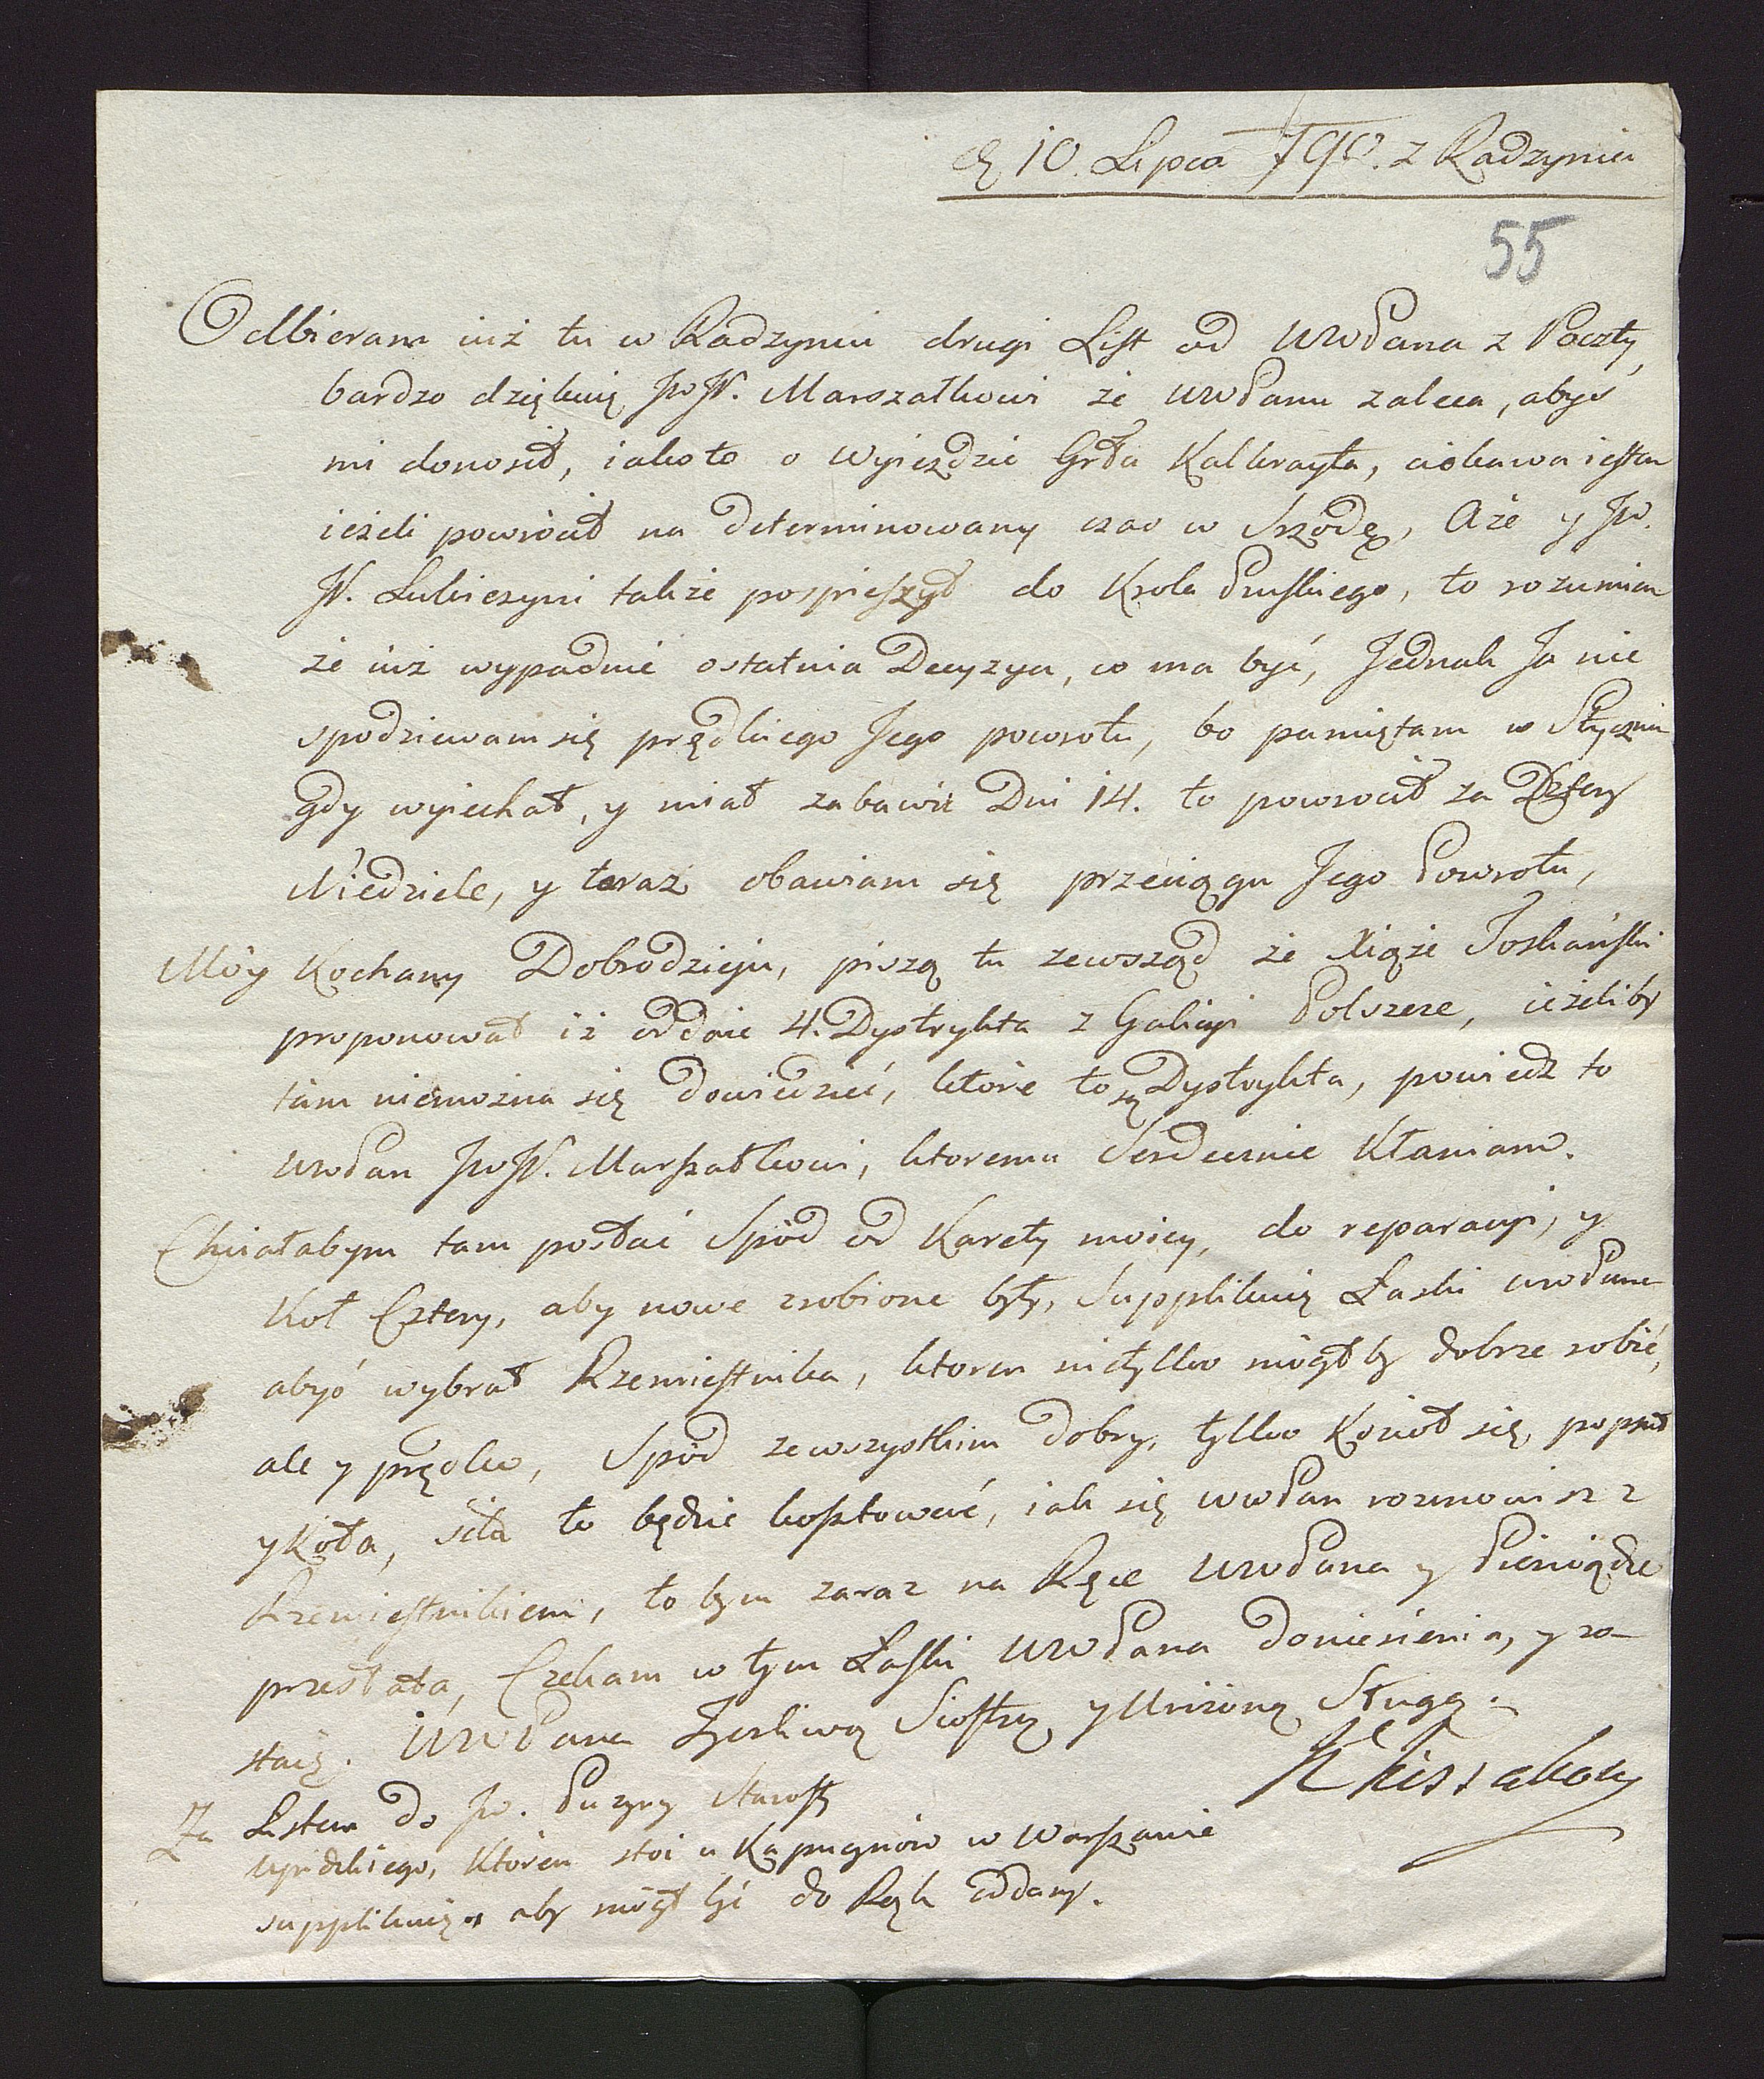 d 10. Lipca 790. z Radzynia
55
Odbieram iuż tu w Radzyniu drugi List od WWPana z Poczty,
bardzo dziękuię JWJP. Marszałkowi że WWPanu zaleca, abyś
mi donosił, iako to o Wyieździe Grfa Kalkrayta, ciekawa iestem
ieżeli powrócił na determinowany czas w Srzodę, Aże y JW.
JP. Lukiezyni także pospieszył do Krola Pruskiego, to rozumiem
że iuż wypadnie ostatnia Decyzya, co ma być, Jednak Ja nie
spodziewam się prędkiego Jego powrotu, bo pamiętam w Styczniu
gdy wyiechał, y miał zabawić Dni 14. to powrocił za Cztery
Niedziele, y teraz obawiam się przeciągu Jego Powrotu,
Móy Kochany Dobrodzieju, piszą tu zewsząd że Xiąże Toskański
proponował iż oddaie 4. Dystrykta z Galicyi Polszcze, ieżeliby
tam niemożna się dowiedzieć, które to są Dystrykta, powiedz to
WWPan JWJP. Marszałkowi, ktoremu Serdecznie Kłaniam.
Chciałabym tam posłać Spód od Karety moiey, do reparacyi, y
Koł Cztery, aby nowe zrobione były, Supplikuię Łaski WWPana
abyś wybrał Rzemieslnika, ktoren nietylko mógłby dobrze robić,
ale y prędko, Spód zewszystkim dobry, tylko Kozioł się popsuł
y Koła, siła to będzie kosztować, iak się WWPan rozmowisz z
Rzemieslnikiem, to bym zaraz na Ręce WWPana y Pieniądze
przesłała, Czekam w tym Łaski WWPana doniesienia, y zo-
staię. WWPana Zyczliwą Siostrą y Uniżoną Sługą.
Za Listem do JW. Puzyny Starosty
Upickiego, Ktoren stoi u Kapucynów w Warszawie
supplikuię aby mógł być do Rąk oddany.